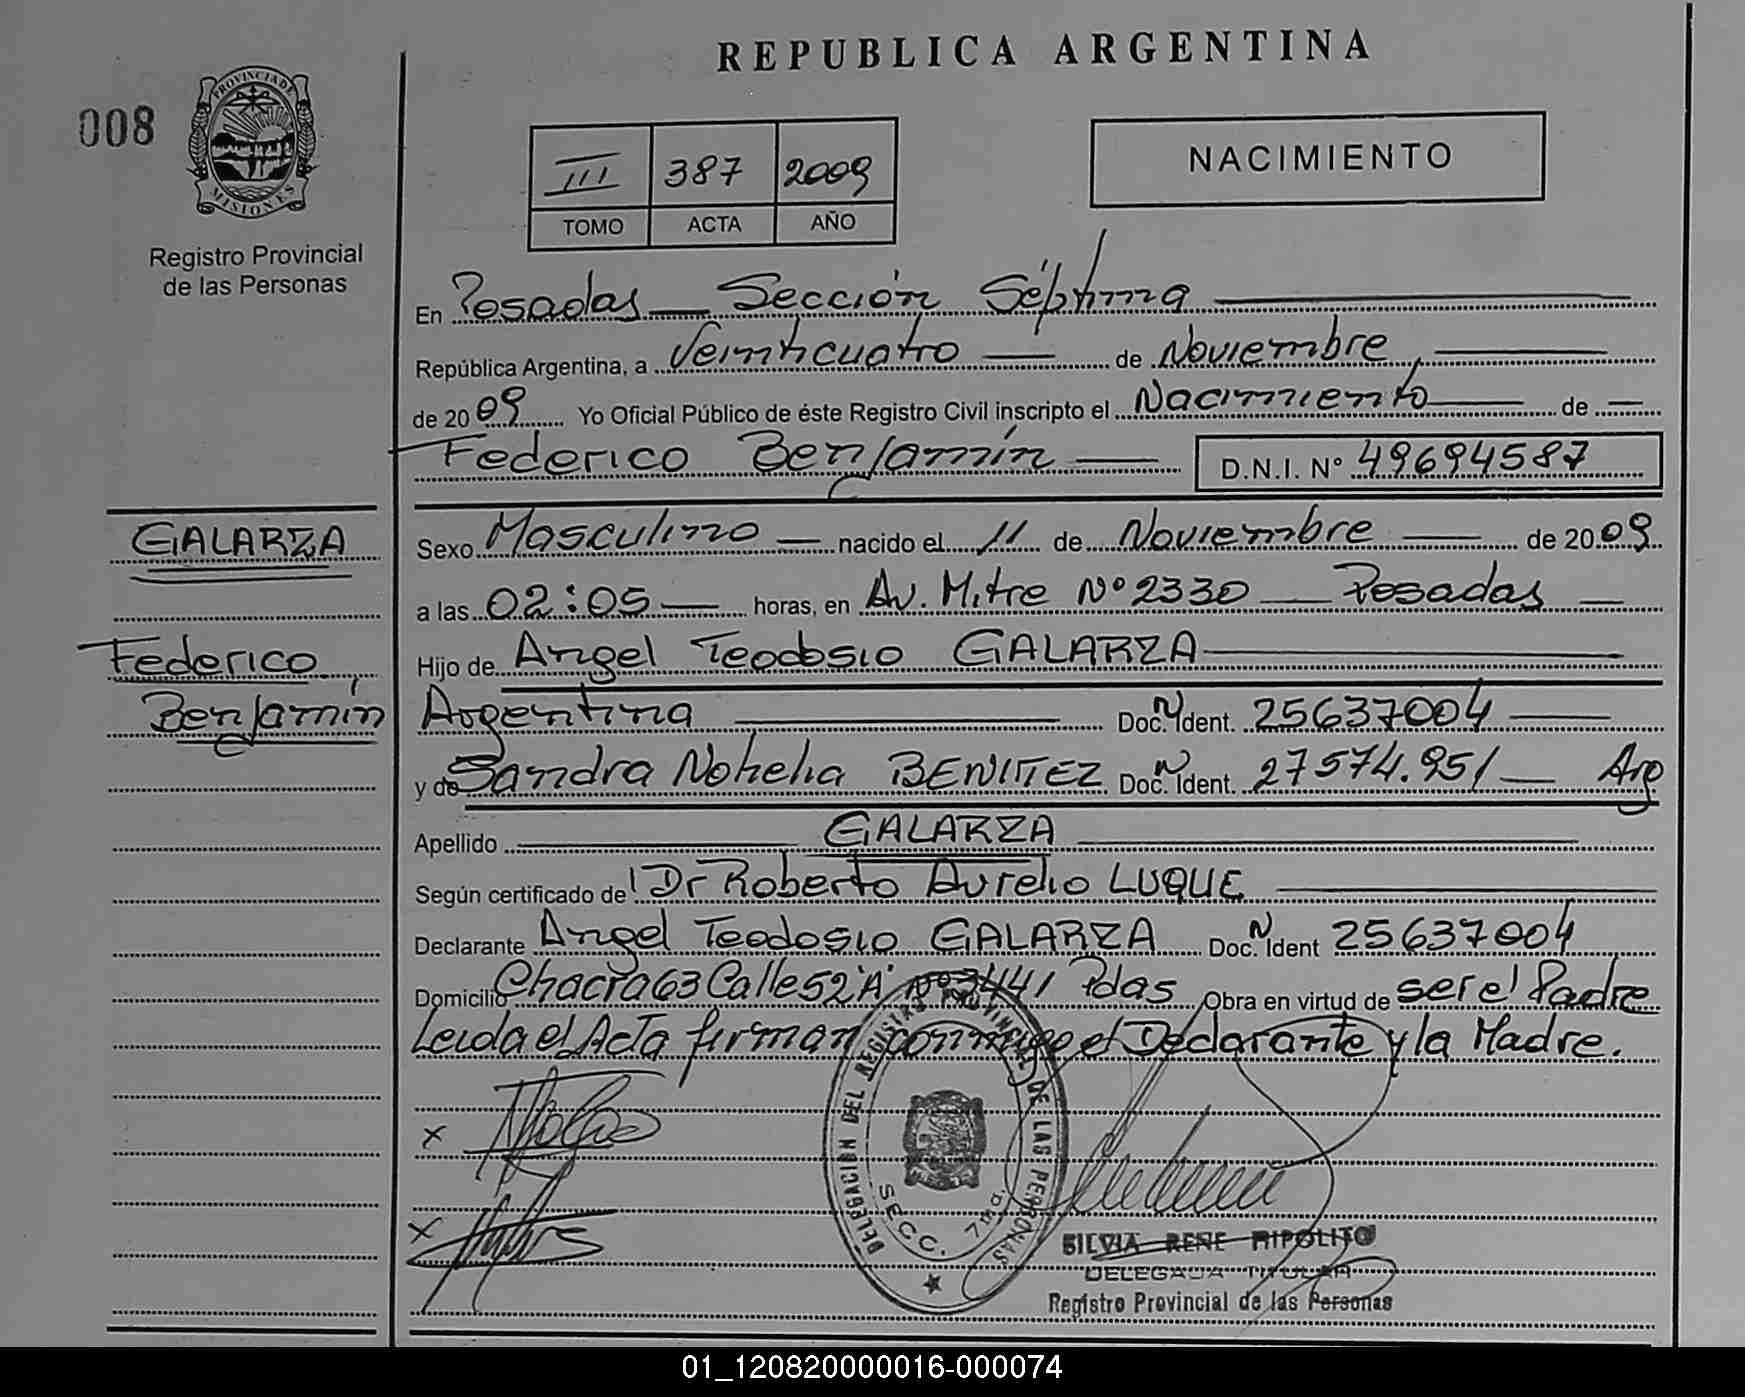 REPUBLICA ARGENTINA
008
PROVINCIA DE
MISIONES
Registro Provincial
de las Personas
III 387 2009
TOMO ACTA AÑO
NACIMIENTO
En Posadas — Sección Séptima
República Argentina, a Veinticuatro — de Noviembre
de 2009 Yo Oficial Público de éste Registro Civil inscripto el Nacimiento de —
Federico Benjamín — D.N.I. N° 49694587
GALARZA
Federico
Benjamín
Sexo Masculino — nacido el 11 de Noviembre — de 2009
a las 02:05 — horas, en Av. Mitre N° 2330 — Posadas —
Hijo de Angel Teodosio GALARZA
Argentina — Doc. N Ident. 25637004 —
y de Sandra Nohelia BENITEZ Doc. N Ident. 27574.951 — Arg
Apellido GALARZA
Según certificado de Dr Roberto Aurelio LUQUE
Declarante Angel Teodosio GALARZA Doc. N Ident 25637004
Domicilio Chacra 63 Calle 52 "A" N° 3441 Pdas Obra en virtud de ser el Padre
Leida el Acta firman conmigo el Declarante y la Madre.
x
x
DELEGACION DEL REGISTRO PROVINCIAL DE LAS PERSONAS
SECC. 7ma.
SILVIA RENE RIPOLITO
DELEGADA TITULAR
Registro Provincial de las Personas
01_120820000016-000074